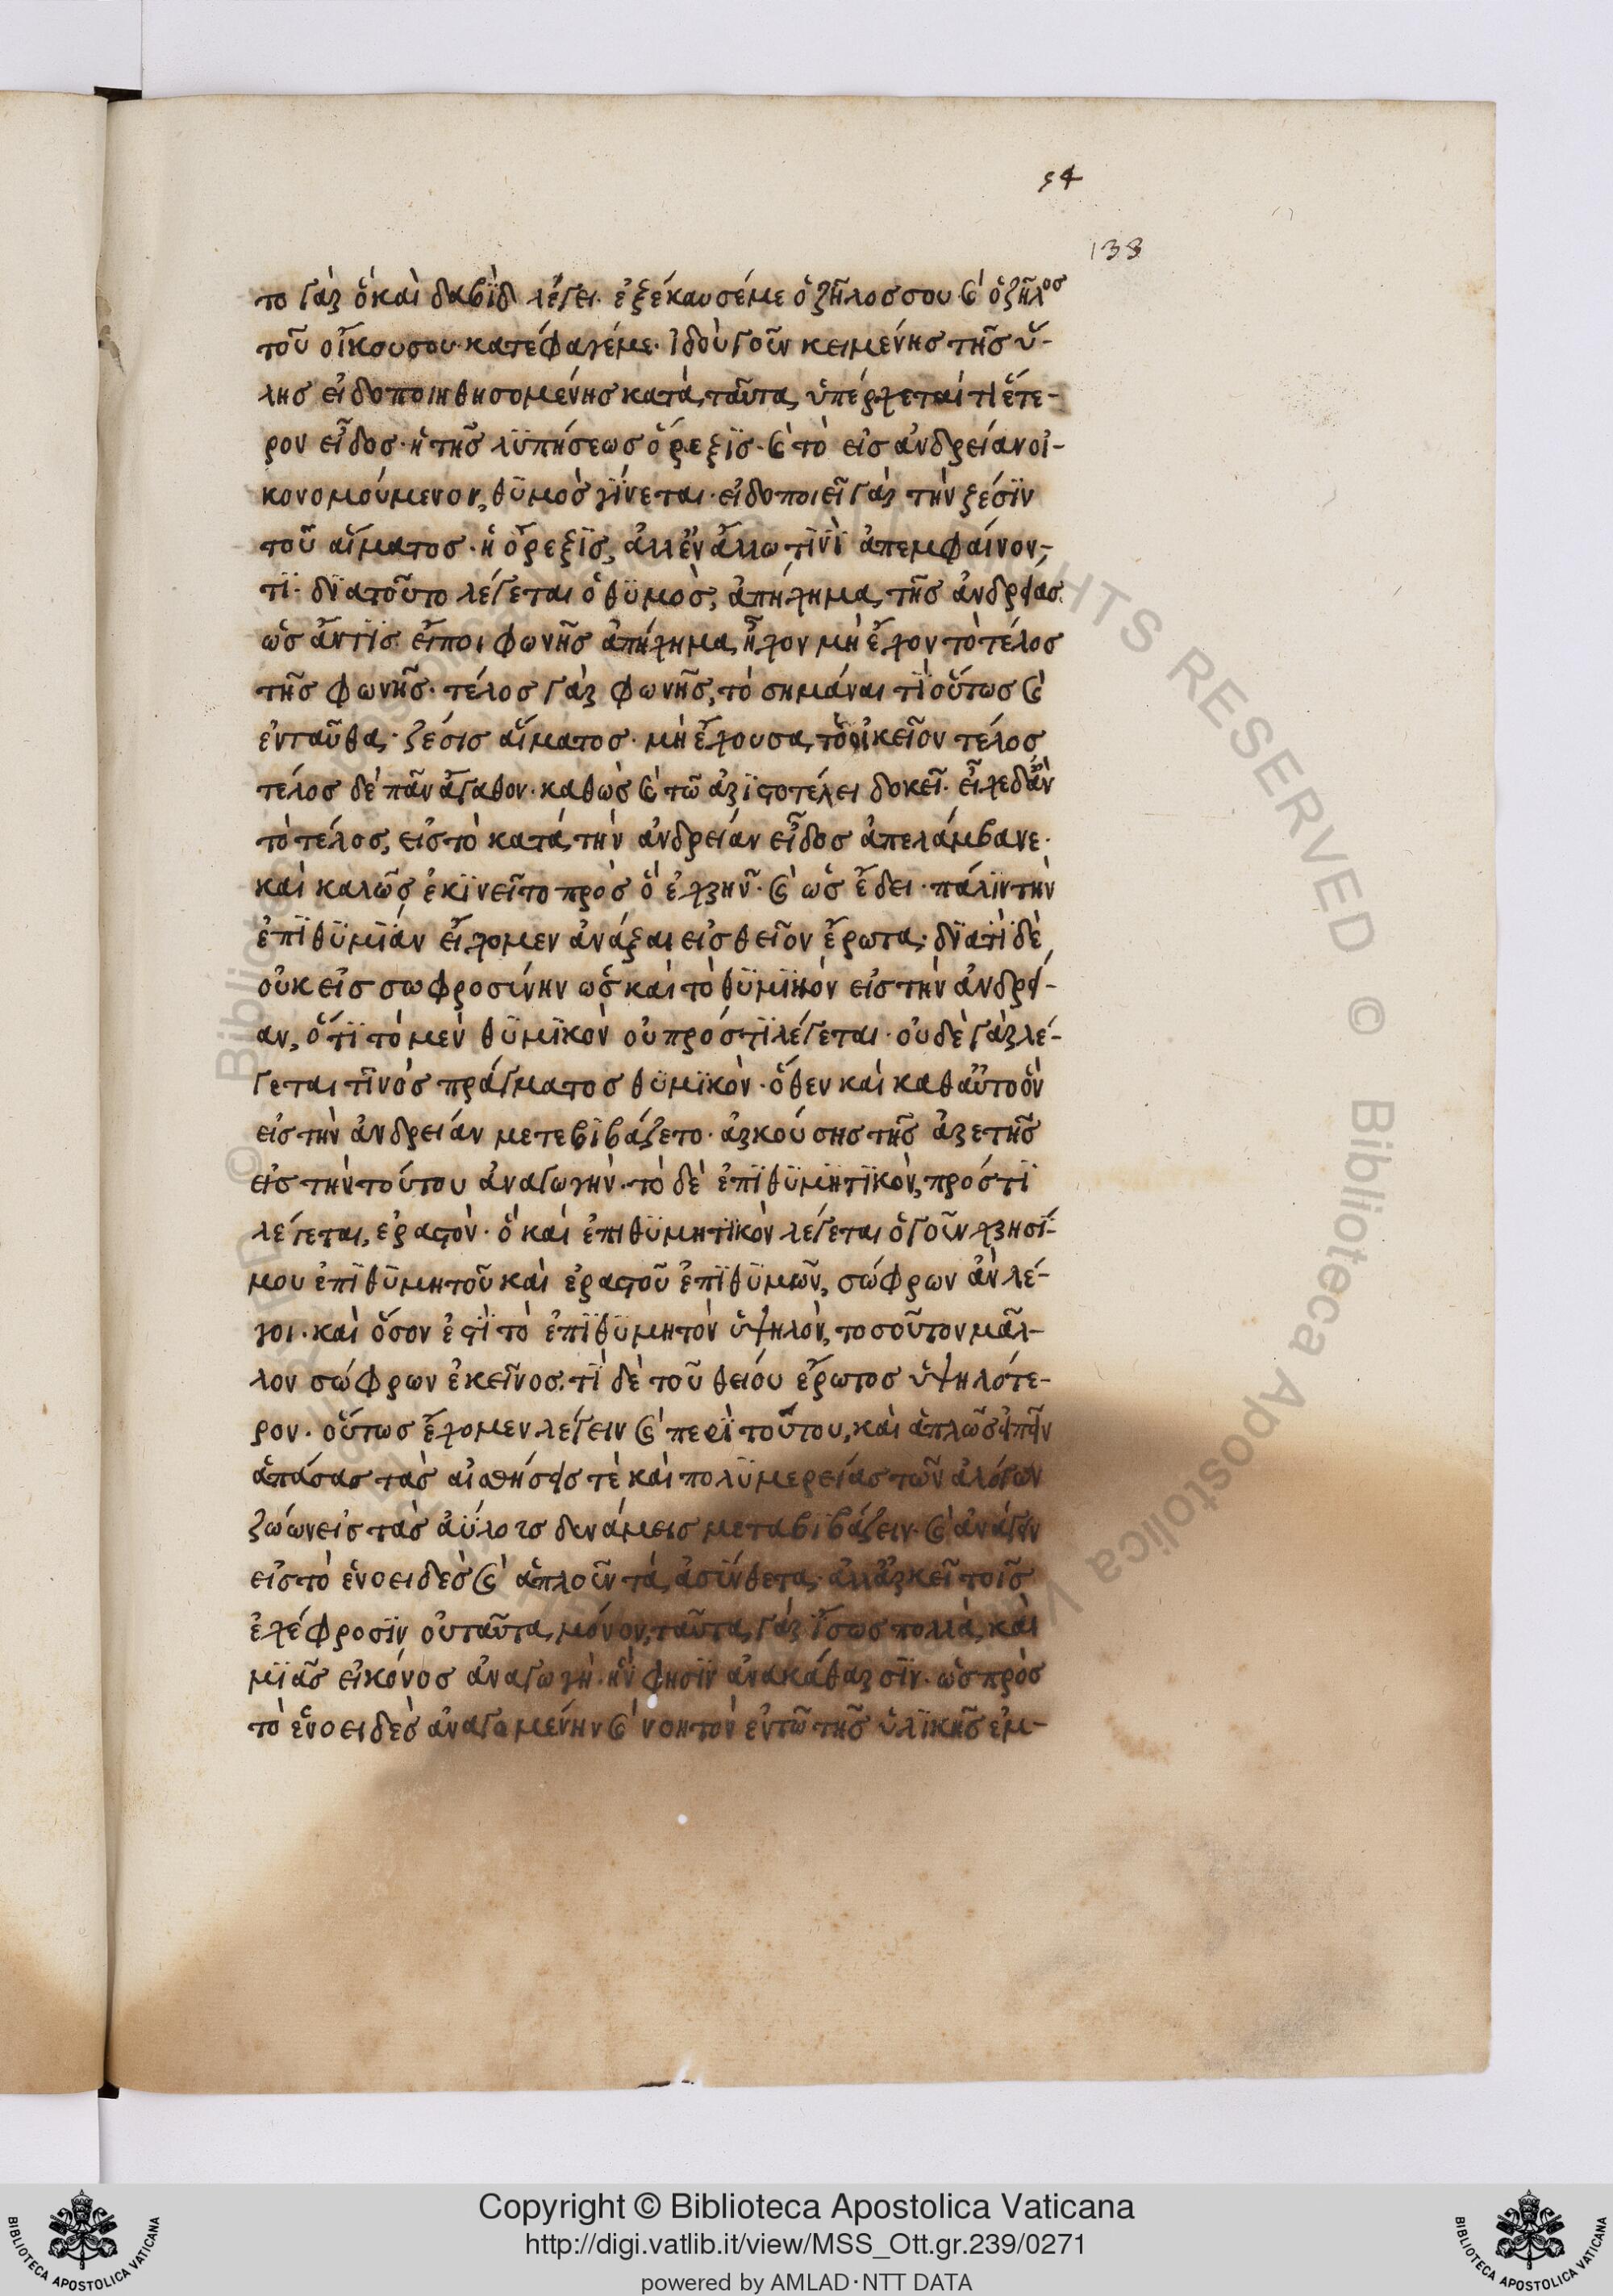 94
133
το γὰρ ὃ καὶ δαβῒδ λέγει· ἐξέκαυσέ με ὁ ζῆλος σου καὶ ὁ ζῆλος
τοῦ οἴκου σου κατέφαγέ με· ἰδοὺ γοῦν κειμένης τῆς ὕ-
λης εἰδοποιηθησομένης κατὰ ταῦτα, ὑπέρχεταί τι ἕτε-
ρον εἶδος· ἡ τῆς λϋπήσεως ὄρεξϊς· καὶ τὸ εἰς ἀνδρείαν οἰ-
κονομούμενον, θϋμὸς γΐνεται· εἰδοποιεῖ γὰρ τὴν ζέσϊν
τοῦ αἵματος· ἡ ὄρεξϊς, ἀλλ ἐν ἄλλω τϊνῒ ἀπεμφαίνον-
τϊ· δϊατοῦτο λέγεται ὁ θϋμὸς, ἀπήχημα τῆς ἀνδρείας
ὡς ἄν τϊς εἴποι φωνῆς ἀπήχημα ἦχον μὴ ἔχον τὸ τέλος
τῆς φωνῆς· τέλος γὰρ φωνῆς, τὸ σημάναι τῒ οὕτως καὶ
ἐνταῦθα· ζέσις αἵματος· μὴ ἔχουσα τὸ οἰκεῖον τέλος
τέλος δὲ πᾶν ἀγαθον· καθὼς καὶ τῶ ἀρϊστοτέλει δοκεῖ· εἶχε δἂν
τὸ τέλος, εἰς τὸ κατὰ τὴν ἀνδρείαν εἶδος ἀπελάμβανε·
καὶ καλῶς ἐκϊνεῖτο πρὸς ὃ ἐχρῆν· καὶ ὡς ἔδει· πάλϊν τὴν
ἐπϊθϋμΐαν εἴχομεν ἀνάξαι εἰς θεῖον ἔρωτα· δϊατῒ δὲ
οὐκ εἰς σωφροσίνην ὡς καὶ τὸ θϋμϊκὸν εἰς τὴν ἀνδρεί-
αν, ὅτϊ τὸ μὲν θϋμϊκὸν οὐ πρός τϊ λέγεται· οὐδὲ γὰρ λέ-
γεται τϊνὸς πράγματος θϋμϊκὸν· ὅθεν καὶ καθ αὑτὸ ὂν
εἰς τὴν ἀνδρείαν μετεβϊβάζετο· ἀρκούσης τῆς ἀρετῆς
εἰς τὴν τούτου ἀναγωγὴν· τὸ δὲ ἐπϊθϋμητϊκὸν, πρός τϊ
λέγεται, ἐραστὸν· ὃ καὶ ἐπιθϋμητϊκὸν λέγεται ὁ γοῦν χρησΐ-
μου ἐπϊθϋμητοῦ καὶ ἐραστοῦ ἐπϊθϋμῶν, σώφρων ἂν λέ-
γοι· καὶ ὅσον ἐστῒ τὸ ἐπϊθϋμητὸν ὑψηλὸν, τοσοῦτον μᾶλ-
λον σώφρων ἐκεῖνος· τῒ δὲ τοῦ θείου ἔρωτος ὑψηλότε-
ρον· οὕτως ἔχομεν λέγειν καὶ περῒ τούτου, καὶ ἁπλῶς εἰπεῖν
ἁπάσας τὰς αἰσθήσεις τὲ καὶ πολϋμερείας τῶν ἀλόγων
ζώων εἰς τὰς ἀΰλοις δυνάμεις μεταβϊβάζειν· καὶ ἀνάγειν
εἰς τὸ ἑνοειδὲς καὶ ἁπλοῦν τὰ ἀσΰνθετα· ἀλλ ἀρκεῖ τοῖς
ἐχέφροσϊν οὐ ταῦτα μόνον, ταῦτα γὰρ ἴσως πολλὰ, καὶ
μϊᾶς εἰκόνος ἀναγωγὴ· ἥν φησϊν ἀνακάθαρσϊν· ὡς πρὸς
τὸ ἑνοειδὲς ἀναγομένην καὶ νοητὸν ἐν τῶ τῆς ὑλϊκῆς ἐμ-
Copyright © Biblioteca Apostolica Vaticana
http://digi.vatlib.it/view/MSS_Ott.gr.239/0271
powered by AMLAD·NTT DATA